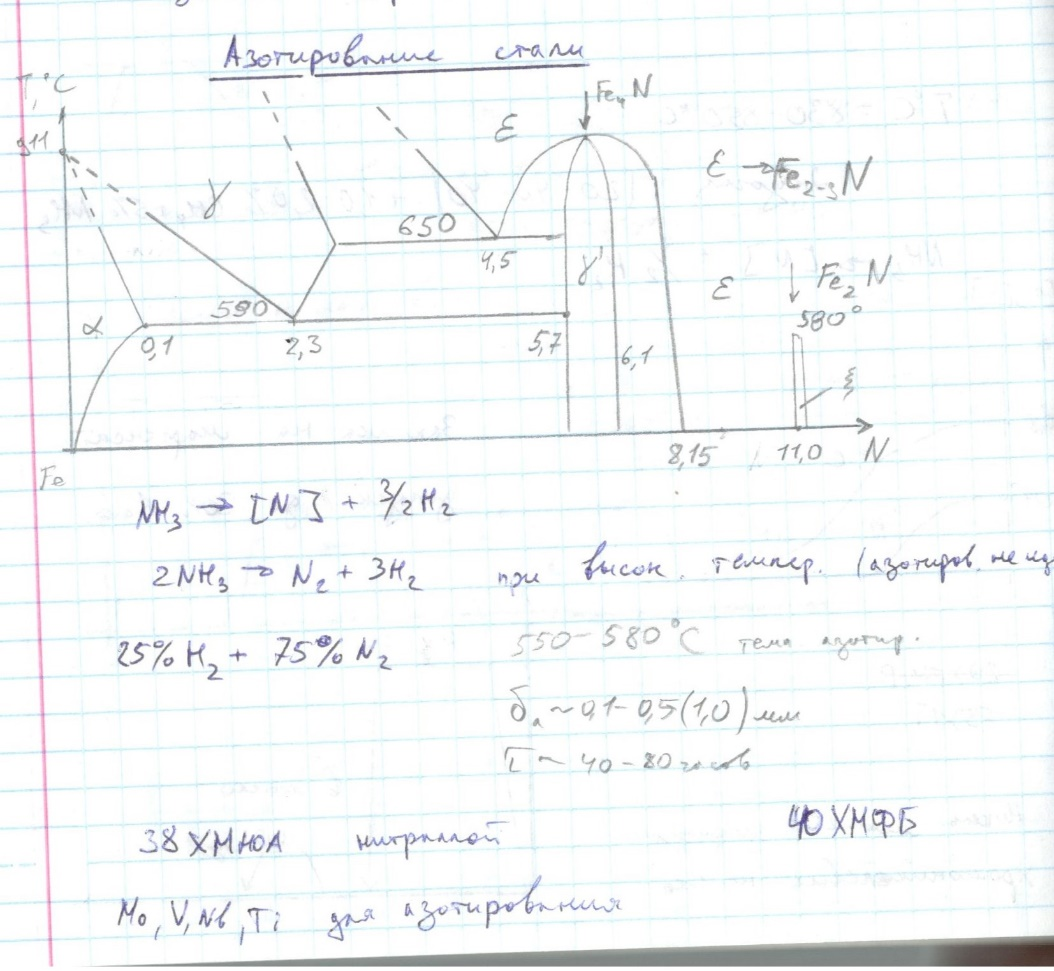 Азотирование стали
T, °C
Fe₄N
911
ε
ε → Fe₂₋₃N
γ
650
4,5
γ'
ε
Fe₂N
580°
α
590
0,1
2,3
5,7
6,1
ξ
8,15
11,0
N
Fe
NH₃ → [N] + 3/2H₂
2NH₃ → N₂ + 3H₂ при высок. темпер. (азотиров. не
25% H₂ + 75% N₂ 550–580°C темп азотир.
δₐ ~ 0,1–0,5(1,0) мм
τ ~ 40–80 часов
38ХМЮА нитраллой 40ХМФБ
Mo, V, Nb, Ti для азотирования